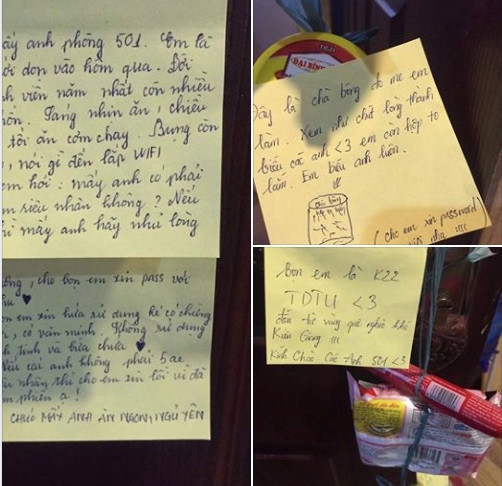 ấy anh phòng 501. Em là
ới dọn vào hôm qua. Đời
h viên năm nhất còn nhiều
hôn. Sáng nhịn ăn, chiều
tối ăn cơm chay. Bụng còn
, nói gì đến lắp WIFI
em hỏi: mấy anh có phải
m siêu nhân không? Nếu
hì mấy anh hãy như lòng
ông, cho bọn em xin pass với
n em xin hứa sử dụng kẻ có chừng
, có văn minh. Không sử dụng
h tinh và bừa
Nếu các anh không phải 5 ae
nhân thì cho em xin lỗi vì đã
m phiền ạ!
CHÚC MẤY ANH ĂN NGON, NGỦ YÊN
ĐẠI BÌNH
Đây là chà bông do mẹ em
làm. Xem như chút lòng thành
biếu các anh <3 em còn hộp to
lắm. Em biếu anh luôn.
Chà bông
(cho em xin password
với nha !!!
bọn em là K22
TDTU <3
đến từ vùng quê nghèo khó
Kiên Giang !!!
Kính Chào Các Anh 501 <3